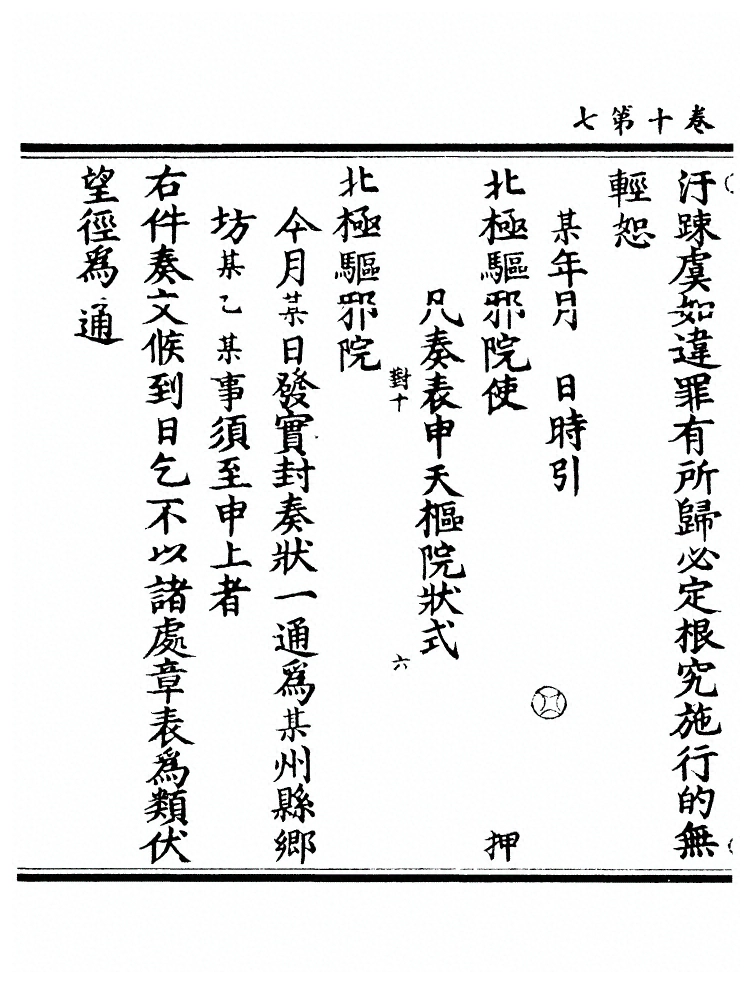 卷十第七
汙踈虞如違罪有所歸必定根究施行的無
輕恕
某年月　日時引
北極驅邪院使　押
凡奏表申天樞院狀式
對十　六
北極驅邪院
今月某日發實封奏狀一通爲某州縣鄉
坊某乙某事須至申上者
右件奏文候到日乞不以諸處章表爲類伏
望徑爲通